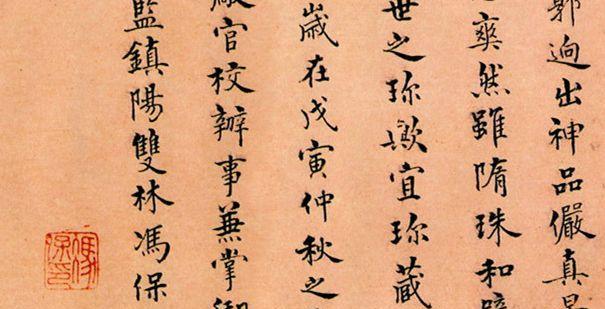 郭逈出神品儼真景
爽然雖隋珠和璧
世之珎歟宜珎藏
歲在戊寅仲秋之
廠官校辦事兼掌御
監鎮陽雙林馮保